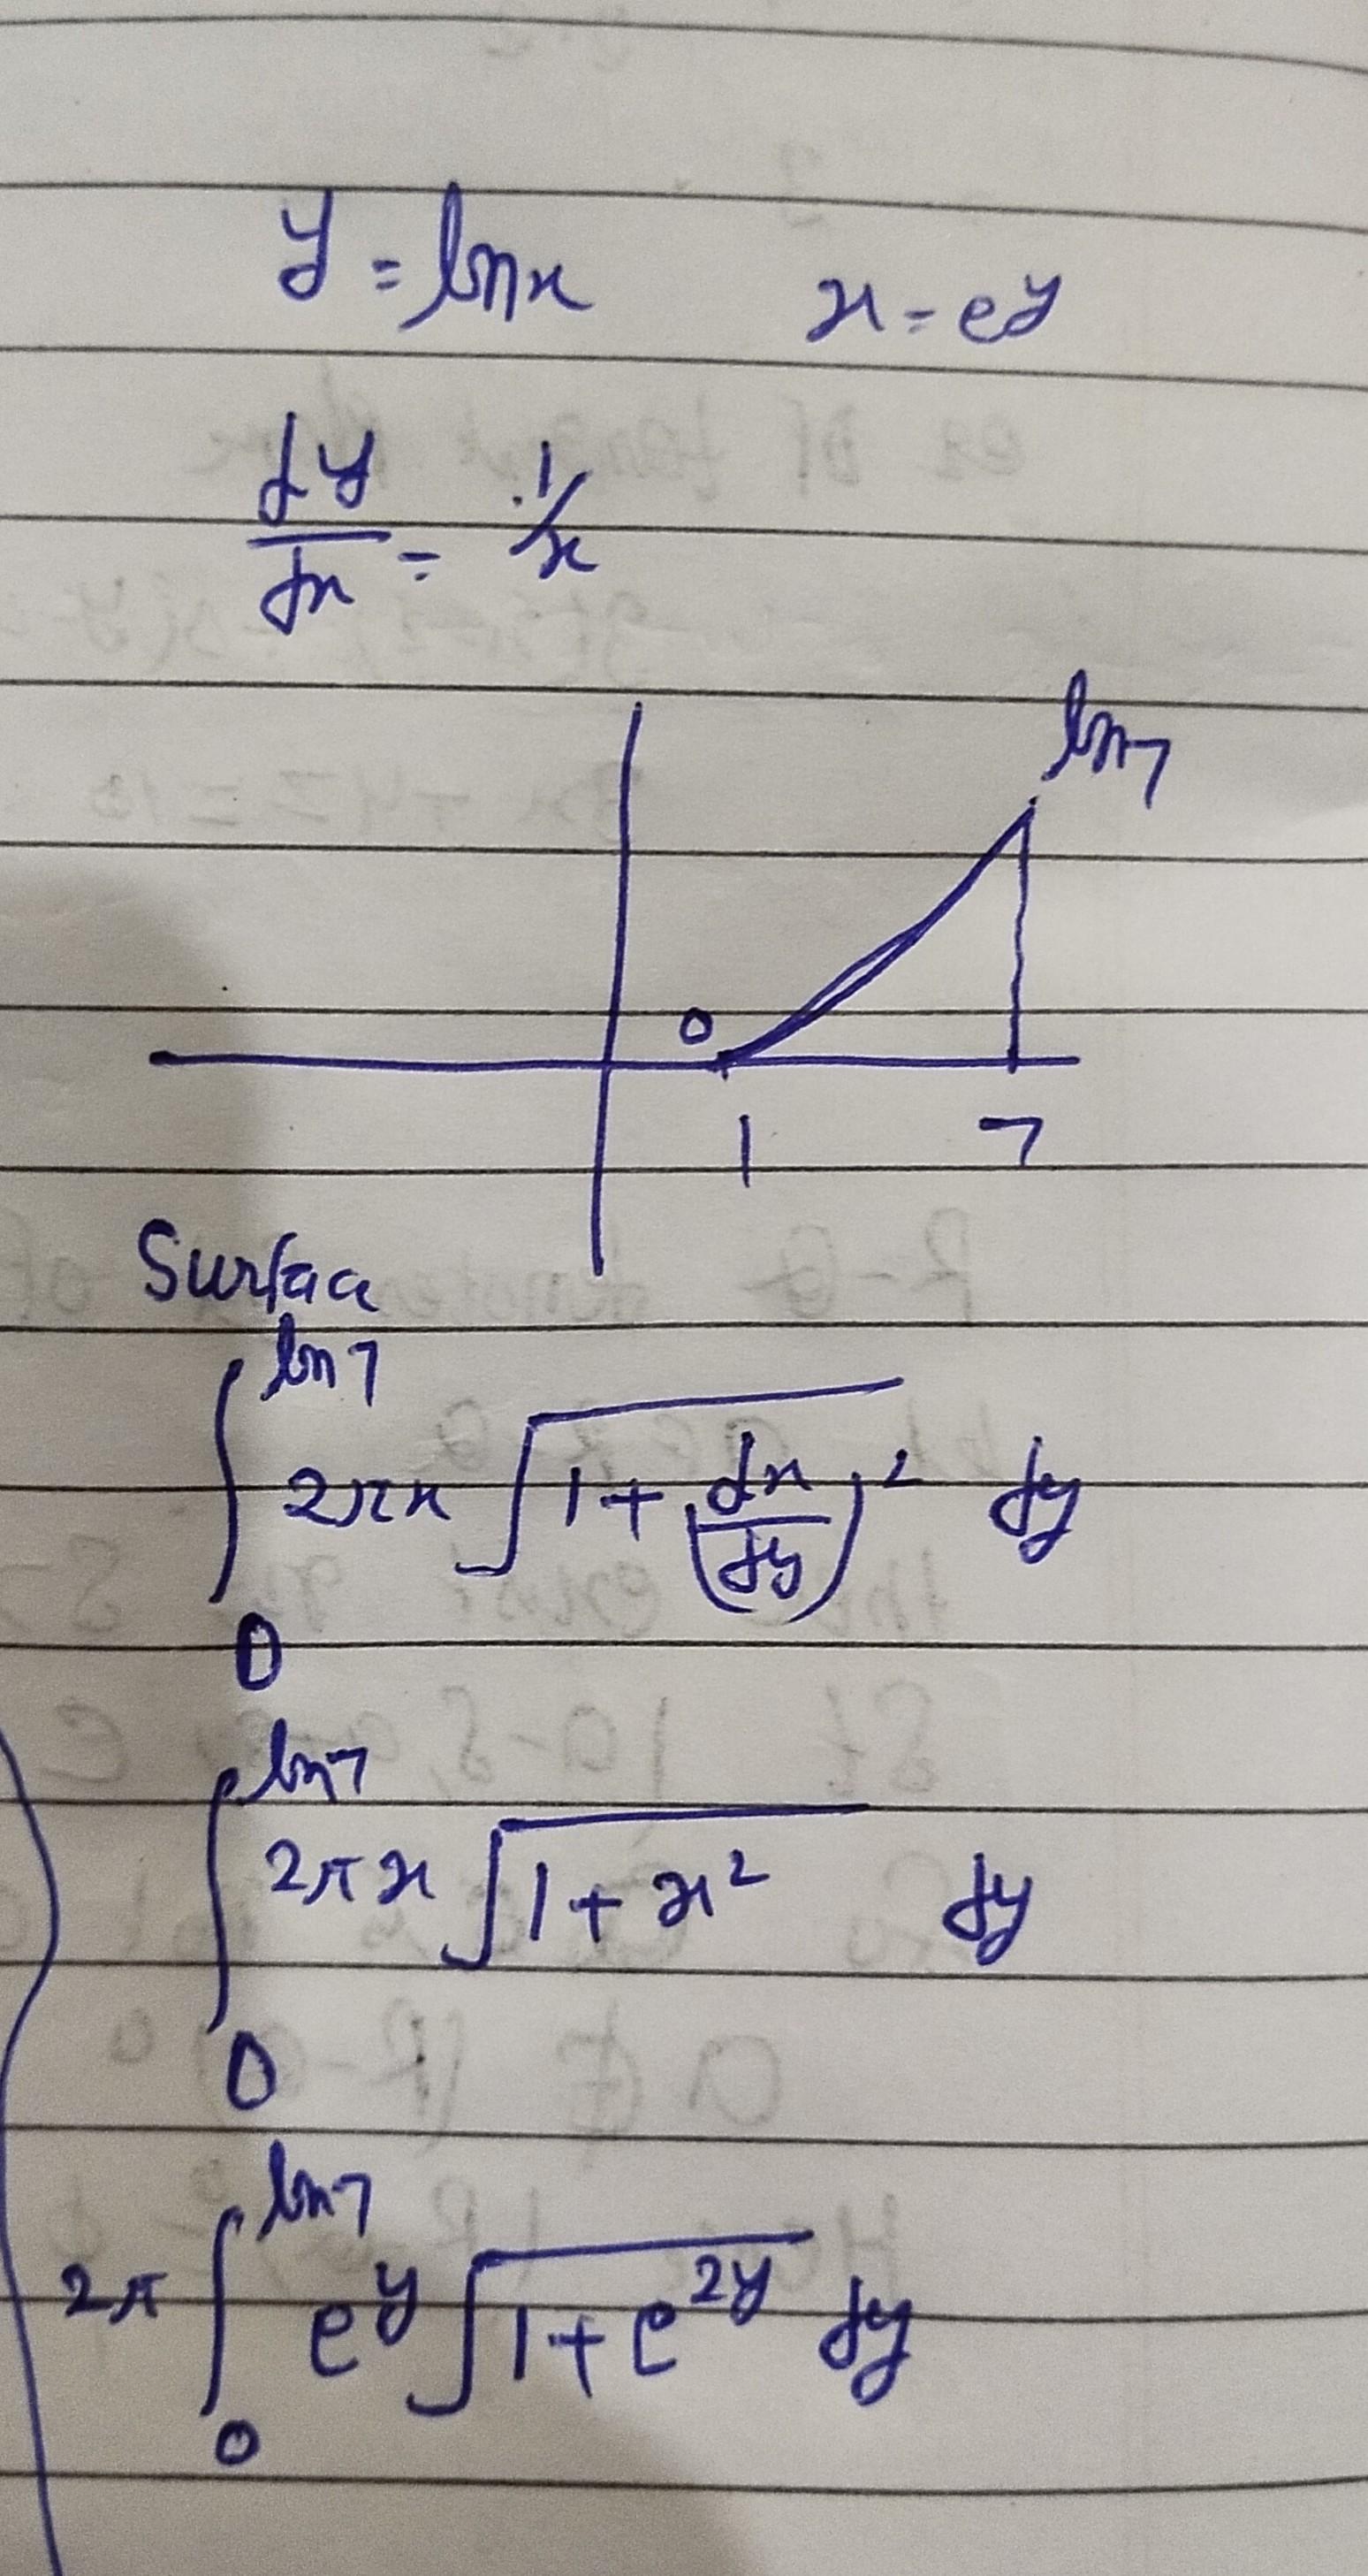 y = lnx x = e^y
dy/dx = 1/x
ln7
0
1 7
Surface
∫_0^ln7 2πx √(1 + (dx/dy)^2) dy
∫_0^ln7 2πx √(1 + x^2) dy
2π ∫_0^ln7 e^y √(1 + e^2y) dy